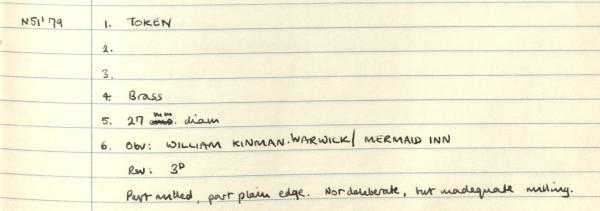 N51'79 1. TOKEN
2.
3.
4. Brass
5. 27 mm. diam
6. Obv: WILLIAM KINMAN.WARWICK/ MERMAID INN
Rev: 3D
Part milled, part plain edge. Not deliberate, but inadequate milling.